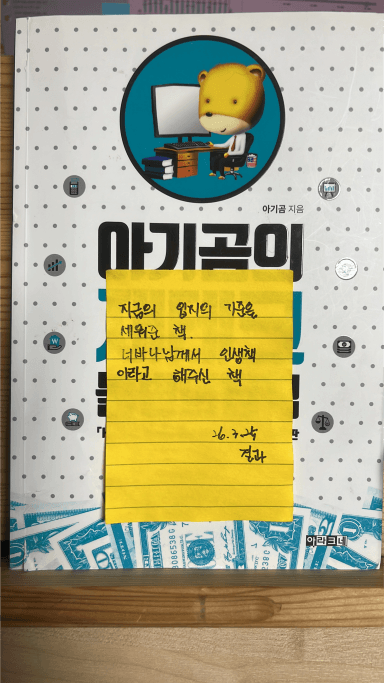 아기곰 지음
아기곰의
지금의 입지의 기준을
세워준 책.
너바나님께서 인생책
이라고 해주신 책
26.3.25
결과
아라크네